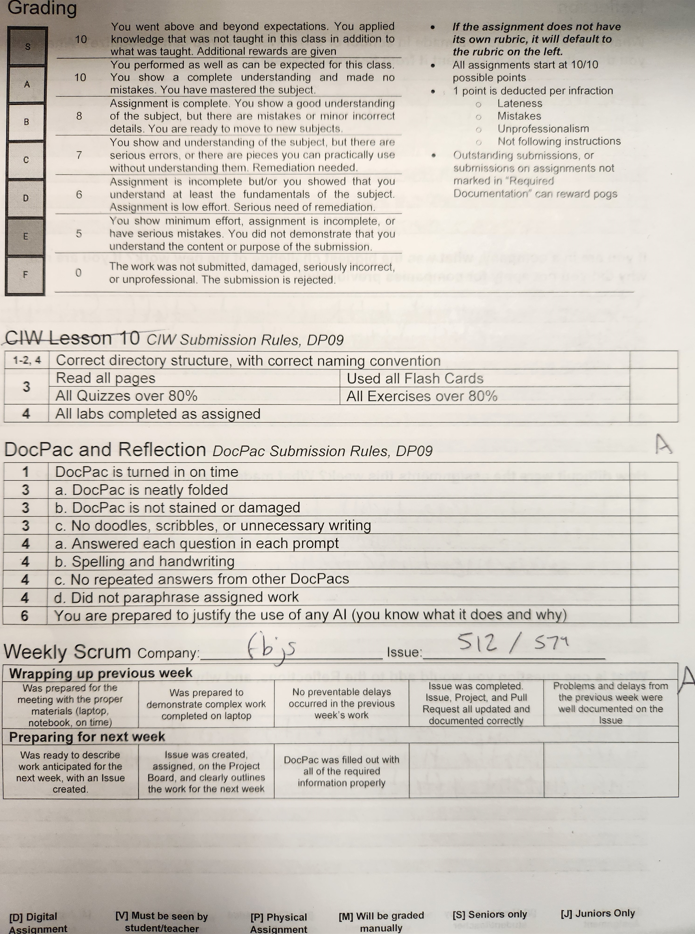 Grading
S
10
You went above and beyond expectations. You applied
knowledge that was not taught in this class in addition to
what was taught. Additional rewards are given
A
10
You performed as well as can be expected for this class.
You show a complete understanding and made no
mistakes. You have mastered the subject.
B
8
Assignment is complete. You show a good understanding
of the subject, but there are mistakes or minor incorrect
details. You are ready to move to new subjects.
C
7
You show and understanding of the subject, but there are
serious errors, or there are pieces you can practically use
without understanding them. Remediation needed.
D
6
Assignment is incomplete but/or you showed that you
understand at least the fundamentals of the subject.
Assignment is low effort. Serious need of remediation.
E
5
You show minimum effort, assignment is incomplete, or
have serious mistakes. You did not demonstrate that you
understand the content or purpose of the submission.
F
0
The work was not submitted, damaged, seriously incorrect,
or unprofessional. The submission is rejected.
• If the assignment does not have
its own rubric, it will default to
the rubric on the left.
• All assignments start at 10/10
possible points
• 1 point is deducted per infraction
o Lateness
o Mistakes
o Unprofessionalism
o Not following instructions
• Outstanding submissions, or
submissions on assignments not
marked in "Required
Documentation" can reward pogs
CIW Lesson 10 CIW Submission Rules, DP09
1-2, 4 Correct directory structure, with correct naming convention
3 Read all pages Used all Flash Cards
All Quizzes over 80% All Exercises over 80%
4 All labs completed as assigned
DocPac and Reflection DocPac Submission Rules, DP09 A
1 DocPac is turned in on time
3 a. DocPac is neatly folded
3 b. DocPac is not stained or damaged
3 c. No doodles, scribbles, or unnecessary writing
4 a. Answered each question in each prompt
4 b. Spelling and handwriting
4 c. No repeated answers from other DocPacs
4 d. Did not paraphrase assigned work
6 You are prepared to justify the use of any AI (you know what it does and why)
Weekly Scrum Company: fbjs Issue: 512 / 574
Wrapping up previous week A
Was prepared for the
meeting with the proper
materials (laptop,
notebook, on time)
Was prepared to
demonstrate complex work
completed on laptop
No preventable delays
occurred in the previous
week's work
Issue was completed.
Issue, Project, and Pull
Request all updated and
documented correctly
Problems and delays from
the previous week were
well documented on the
Issue
Preparing for next week
Was ready to describe
work anticipated for the
next week, with an Issue
created.
Issue was created,
assigned, on the Project
Board, and clearly outlines
the work for the next week
DocPac was filled out with
all of the required
information properly
[D] Digital
Assignment
[V] Must be seen by
student/teacher
[P] Physical
Assignment
[M] Will be graded
manually
[S] Seniors only
[J] Juniors Only